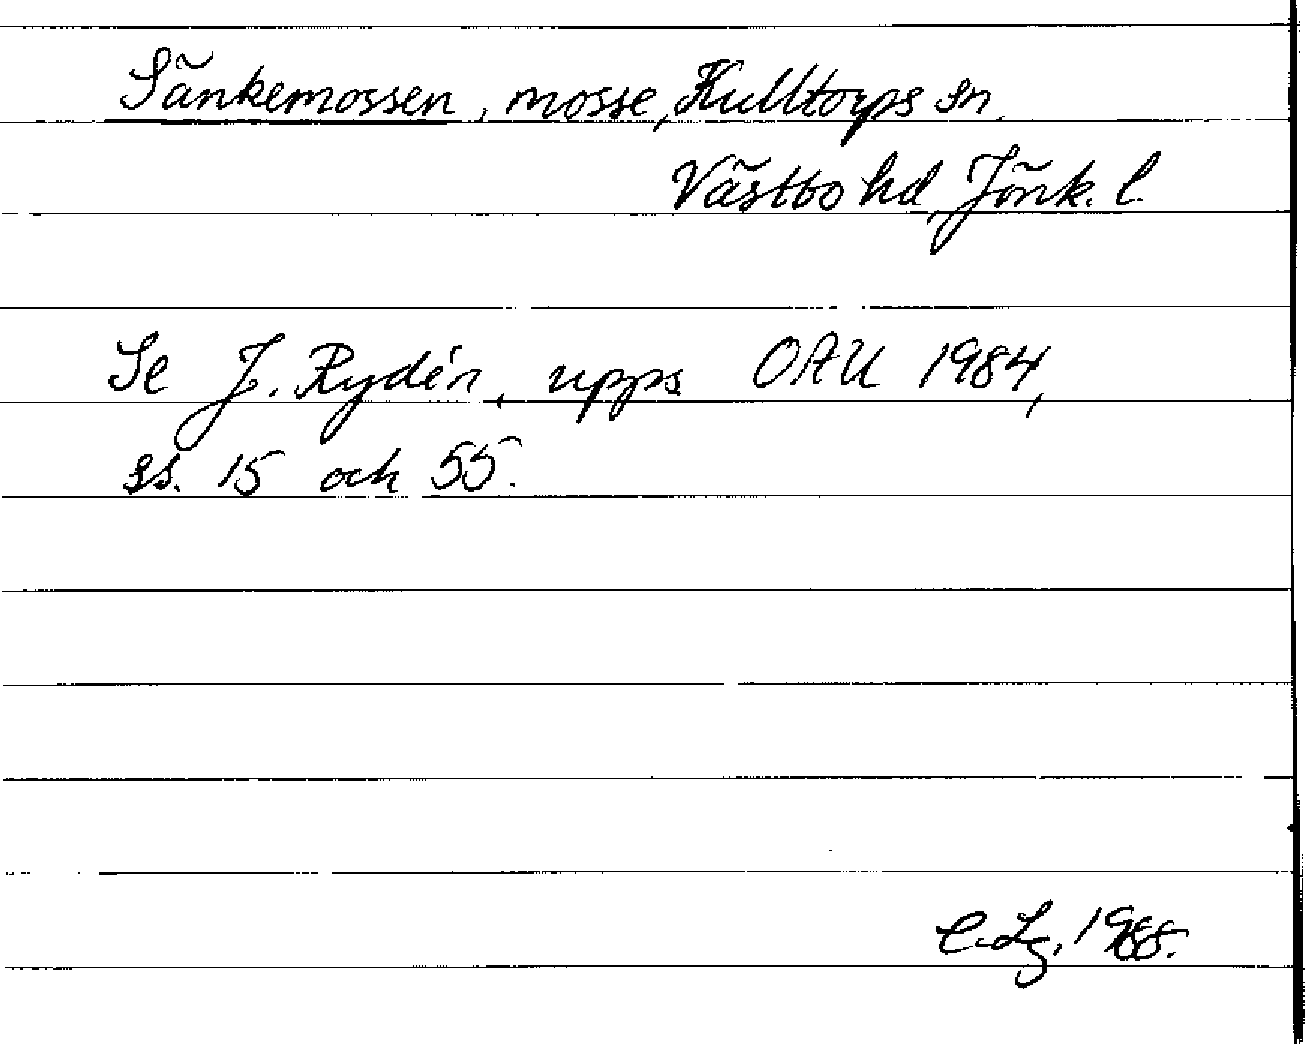 Sänkemossen, mosse, Kulltorps sn.
Västbo hd, Jönk. l.
Se J. Rydén, upps OAU 1984,
ss. 15 och 55.
C. Lg, 1988.